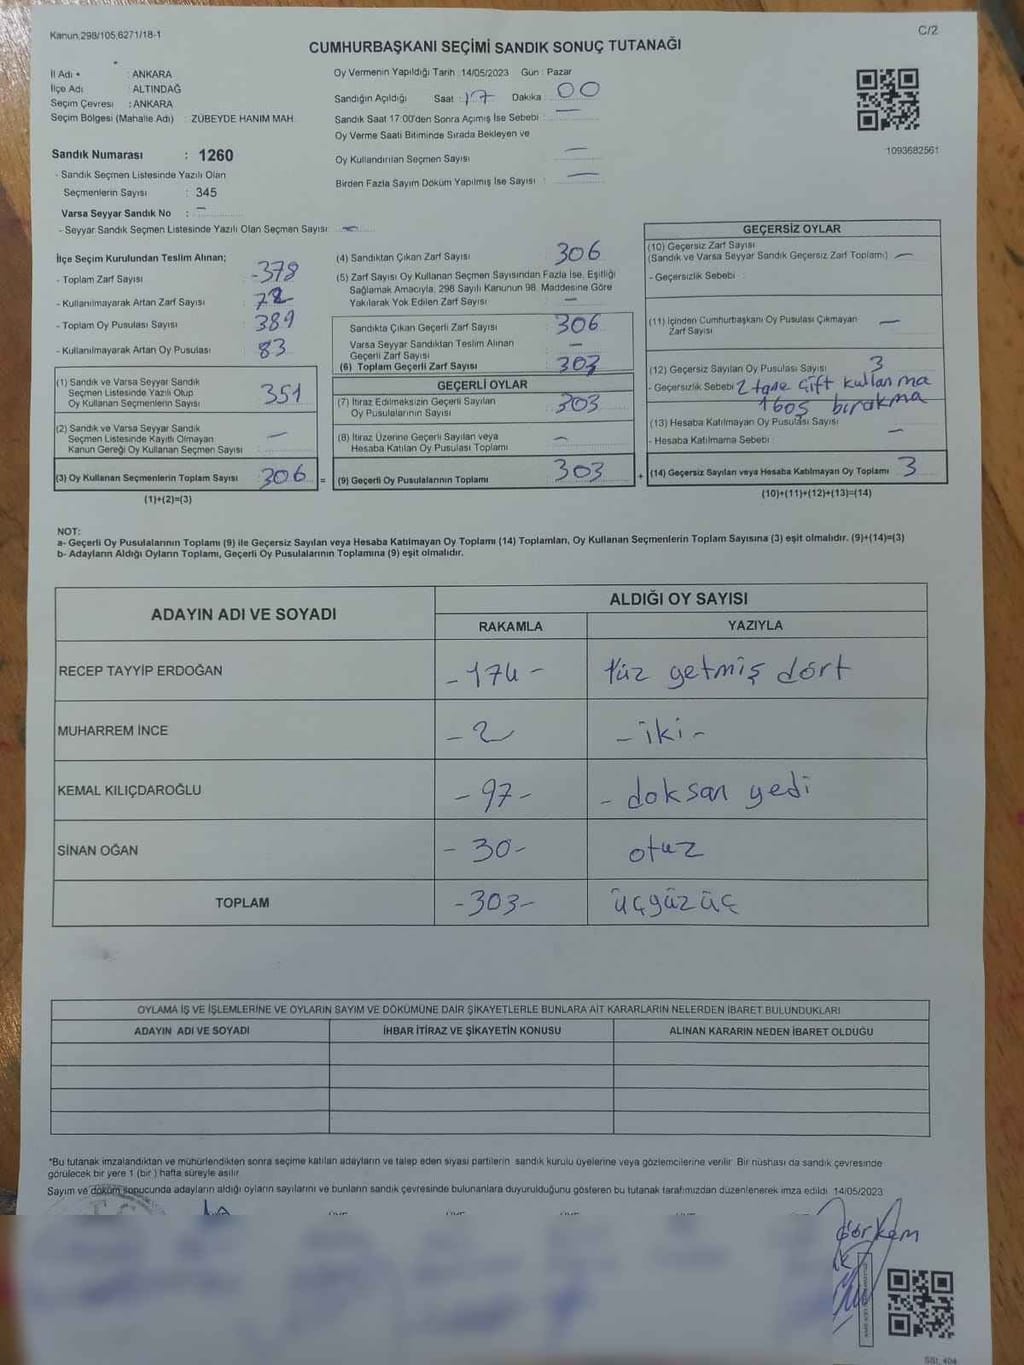 Kanun,298/105,6271/18-1
C/2
CUMHURBAŞKANI SEÇİMİ SANDIK SONUÇ TUTANAĞI
İl Adı : ANKARA
İlçe Adı : ALTINDAĞ
Seçim Çevresi : ANKARA
Seçim Bölgesi (Mahalle Adı) : ZÜBEYDE HANIM MAH.
Sandık Numarası : 1260
- Sandık Seçmen Listesinde Yazılı Olan
Seçmenlerin Sayısı : 345
Varsa Seyyar Sandık No : -
- Seyyar Sandık Seçmen Listesinde Yazılı Olan Seçmen Sayısı : -
Oy Vermenin Yapıldığı Tarih :14/05/2023 Gün : Pazar
Sandığın Açıldığı Saat : 17 Dakika : 00
Sandık Saat 17:00'den Sonra Açımış İse Sebebi : -
Oy Verme Saati Bitiminde Sırada Bekleyen ve
Oy Kullandırılan Seçmen Sayısı : -
Birden Fazla Sayım Döküm Yapılmış İse Sayısı : -
1093682561
İlçe Seçim Kurulundan Teslim Alınan;
- Toplam Zarf Sayısı : -378
- Kullanılmayarak Artan Zarf Sayısı : 72
- Toplam Oy Pusulası Sayısı : 389
- Kullanılmayarak Artan Oy Pusulası : 83
(1) Sandık ve Varsa Seyyar Sandık
Seçmen Listesinde Yazılı Olup
Oy Kullanan Seçmenlerin Sayısı : 351
(2) Sandık ve Varsa Seyyar Sandık
Seçmen Listesinde Kayıtlı Olmayan
Kanun Gereği Oy Kullanan Seçmen Sayısı : -
(3) Oy Kullanan Seçmenlerin Toplam Sayısı : 306 =
(1)+(2)=(3)
(4) Sandıktan Çıkan Zarf Sayısı : 306
(5) Zarf Sayısı Oy Kullanan Seçmen Sayısından Fazla İse, Eşitliği
Sağlamak Amacıyla, 298 Sayılı Kanunun 98. Maddesine Göre
Yakılarak Yok Edilen Zarf Sayısı : -
Sandıkta Çıkan Geçerli Zarf Sayısı : 306
Varsa Seyyar Sandıktan Teslim Alınan
Geçerli Zarf Sayısı : -
(6) Toplam Geçerli Zarf Sayısı : 303
GEÇERLİ OYLAR
(7) İtiraz Edilmeksizin Geçerli Sayılan
Oy Pusulalarının Sayısı : 303
(8) İtiraz Üzerine Geçerli Sayılan veya
Hesaba Katılan Oy Pusulası Toplamı : -
(9) Geçerli Oy Pusulalarının Toplamı : 303 +
GEÇERSİZ OYLAR
(10) Geçersiz Zarf Sayısı
(Sandık ve Varsa Seyyar Sandık Geçersiz Zarf Toplamı) : -
- Geçersizlik Sebebi :
(11) İçinden Cumhurbaşkanı Oy Pusulası Çıkmayan
Zarf Sayısı : -
(12) Geçersiz Sayılan Oy Pusulası Sayısı : 3
- Geçersizlik Sebebi : 2 tane çift kullanma
1 boş bırakma
(13) Hesaba Katılmayan Oy Pusulası Sayısı : -
- Hesaba Katılmama Sebebi :
(14) Geçersiz Sayılan veya Hesaba Katılmayan Oy Toplamı : 3
(10)+(11)+(12)+(13)=(14)
NOT:
a- Geçerli Oy Pusulalarının Toplamı (9) ile Geçersiz Sayılan veya Hesaba Katılmayan Oy Toplamı (14) Toplamları, Oy Kullanan Seçmenlerin Toplam Sayısına (3) eşit olmalıdır. (9)+(14)=(3)
b- Adayların Aldığı Oyların Toplamı, Geçerli Oy Pusulalarının Toplamına (9) eşit olmalıdır.
ADAYIN ADI VE SOYADI
ALDIĞI OY SAYISI
RAKAMLA YAZIYLA
RECEP TAYYİP ERDOĞAN -174- Yüz yetmiş dört
MUHARREM İNCE -2 -iki-
KEMAL KILIÇDAROĞLU -97- -doksan yedi
SİNAN OĞAN -30- otuz
TOPLAM -303- üçyüzüç
OYLAMA İŞ VE İŞLEMLERİNE VE OYLARIN SAYIM VE DÖKÜMÜNE DAİR ŞİKAYETLERLE BUNLARA AİT KARARLARIN NELERDEN İBARET BULUNDUKLARI
ADAYIN ADI VE SOYADI İHBAR İTİRAZ VE ŞİKAYETİN KONUSU ALINAN KARARIN NEDEN İBARET OLDUĞU
*Bu tutanak imzalandıktan ve mühürlendikten sonra seçime katılan adayların ve talep eden siyasi partilerin sandık kurulu üyelerine veya gözlemcilerine verilir. Bir nüshası da sandık çevresinde
görülecek bir yere 1 (bir ) hafta süreyle asılır.
Sayım ve döküm sonucunda adayların aldığı oyların sayılarını ve bunların sandık çevresinde bulunanlara duyurulduğunu gösteren bu tutanak tarafımızdan düzenlenerek imza edildi. 14/05/2023
Görkem